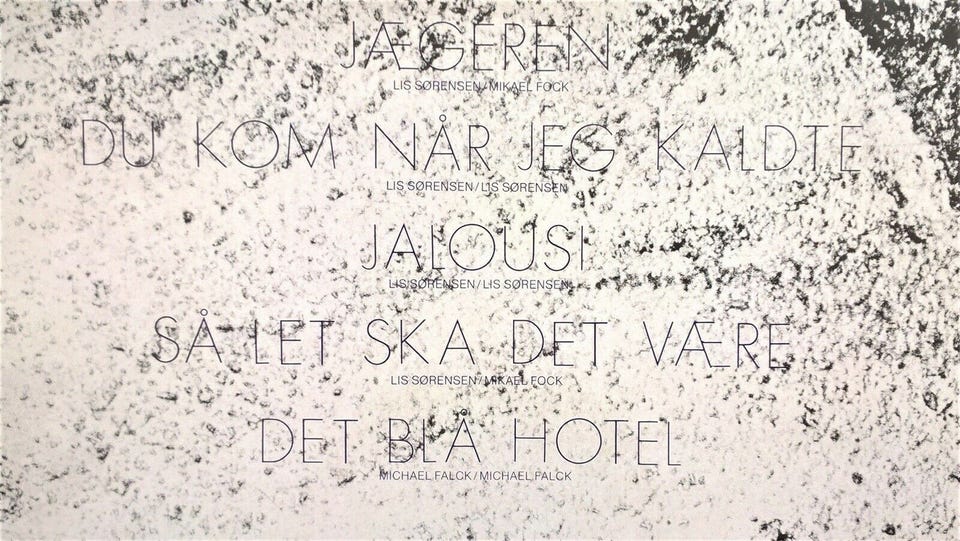 JÆGEREN
LIS SØRENSEN/MIKAEL FOCK
DU KOM NÅR JEG KALDTE
LIS SØRENSEN/LIS SØRENSEN
JALOUSI
LIS SØRENSEN/LIS SØRENSEN
SÅ LET SKA DET VÆRE
LIS SØRENSEN/MIKAEL FOCK
DET BLÅ HOTEL
MICHAEL FALCK/MICHAEL FALCK